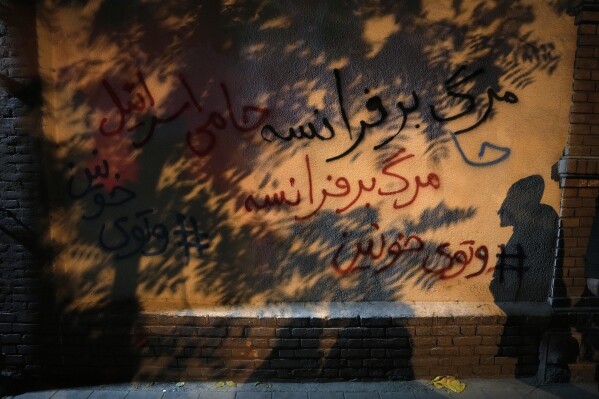 مرگ بر فرانسه
حامی اسرائیل
حا
مرگ بر فرانسه
#وتوی خونین
#وتوی خونین